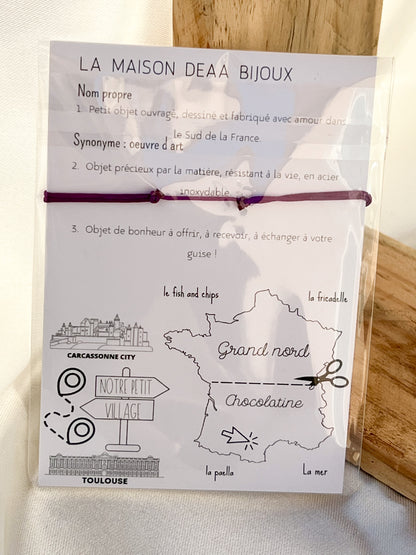 LA MAISON DEAA BIJOUX
Nom propre
1. Petit objet ouvragé, dessiné et fabriqué avec amour dans
le Sud de la France.
Synonyme : oeuvre d'art
2. Objet précieux par la matière, résistant à la vie, en acier
inoxydable.
3. Objet de bonheur à offrir, à recevoir, à échanger à votre
guise !
le fish and chips
la fricadelle
CARCASSONNE CITY
Grand nord
NOTRE PETIT
VILLAGE
Chocolatine
TOULOUSE
la paella
La mer